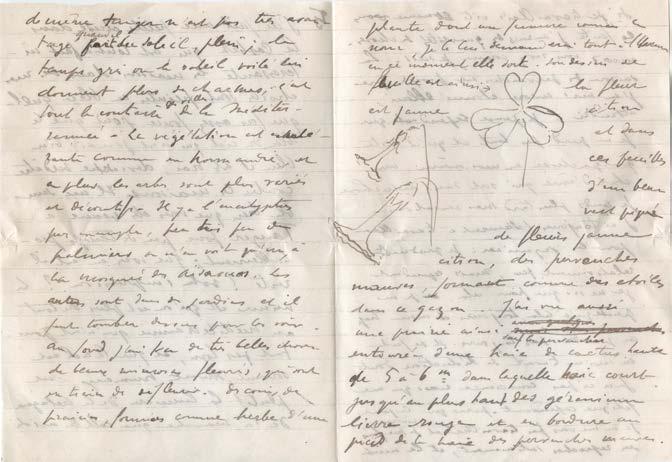 de même Tanger n'est pas très avan
tagé quand il fait du soleil, plein; le
temps gris ou le soleil voilé lui
donnent plus de charmes, c'est
tout le contraire des villes de la Médite-
rannée. La végétation est
comme en Normandie, et
en plus les arbres sont plus variés
et décoratifs. Il y a l'eucalyptus
par exemple, peu très peu de
palmiers on n'en voit qu'un, à
la mosquée des Aïssaouas. les
autres sont dans des jardins et il
faut tomber dessus pour les voir.
Au fond j'ai peu de très belles choses
de beaux mimosas fleuris, qui sont
en train de défleurir. Des coins de
prairies, formés comme herbe d'une
plante dont une femme comme la
nous. Je te la demanderai tout à l'heure
elle sort. Son dessin de
feuille est ainsi la fleur
est jaune citron
et dans
ces feuilles
d'un beau
vert piqué
de fleurs jaune
citron, des pervenches
mauves, formant comme des étoiles
dans ce gazon. J'ai vu aussi
une prairie ainsi
sans les pervenches
entourée d'une haie de cactus haute
de 5 à 6 m dans laquelle haie court
jusqu'au plus haut des géranium
lierre rouge et en bordure au
pied de la haie des pervenches mauves.